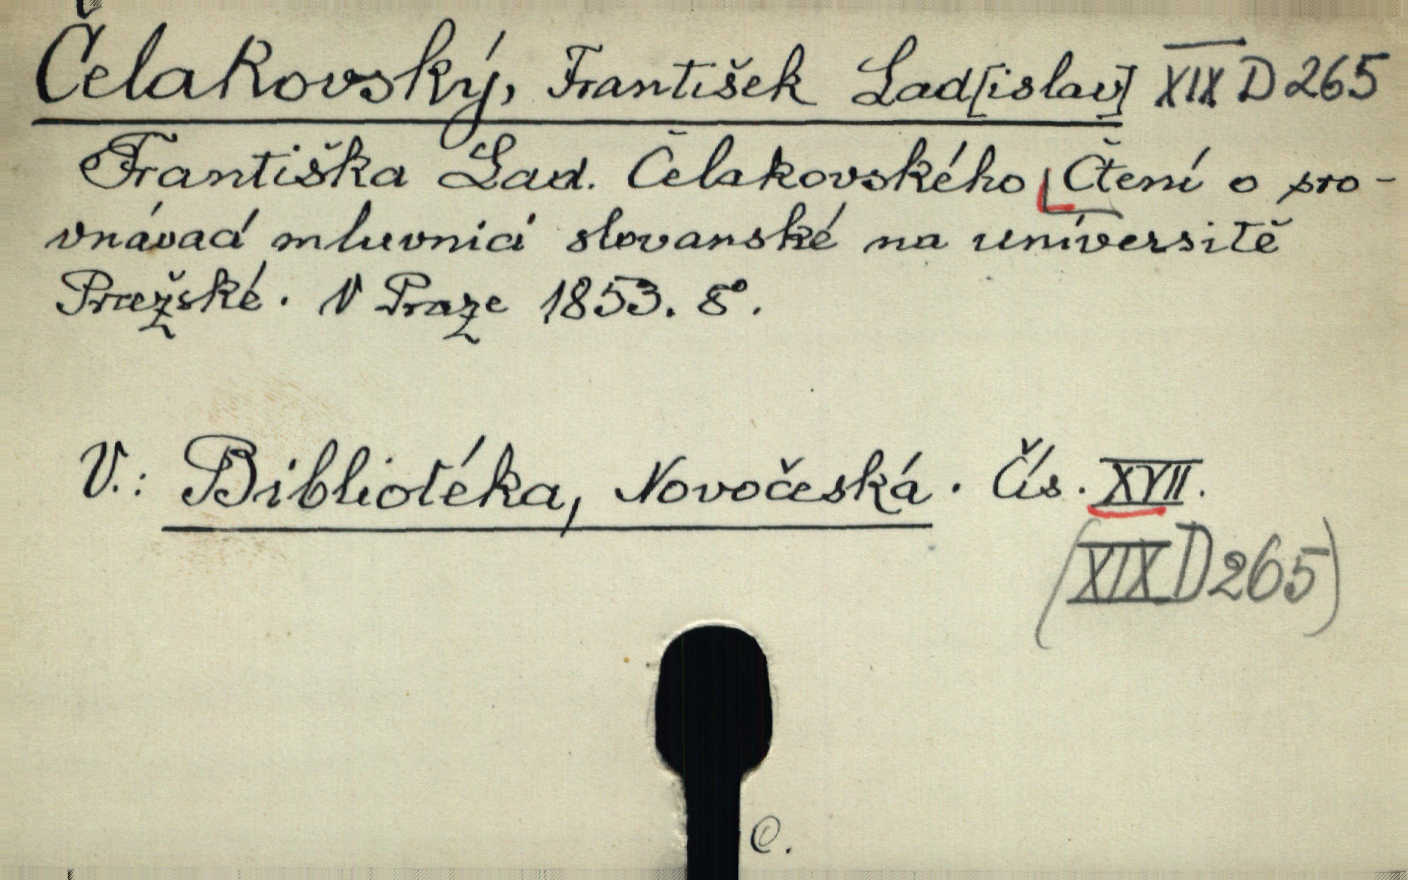 Čelakovský, František Lad[islav] XIX D 265
Františka Lad. Čelakovského Čtení o pro-
vnávací mluvnici slovanské na universitě
Pražské. V Praze 1853. 8°.
V.: Bibliotéka, Novočeská. Čís. XVII.
(XIX D 265)
C.